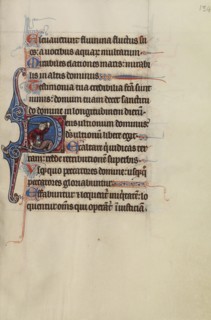 Eleuauerunt flumina fluctus su
os: a uocibus aquarum multarum.
Mirabiles elationes maris: mirabi
lis in altis dominus.
Testimonia tua credibilia facta sunt
nimis: domum tuam decet sanctitu
do domine in longitudinem dierum.
Deus ultionum dominus:
deus ultionum libere egit.
Exaltare qui iudicas ter
ram: redde retributionem superbis.
Usquequo peccatores domine: usquequo
peccatores gloriabuntur.
Effabuntur et loquentur iniquitatem: lo
quentur omnes qui operantur iniusticiam.